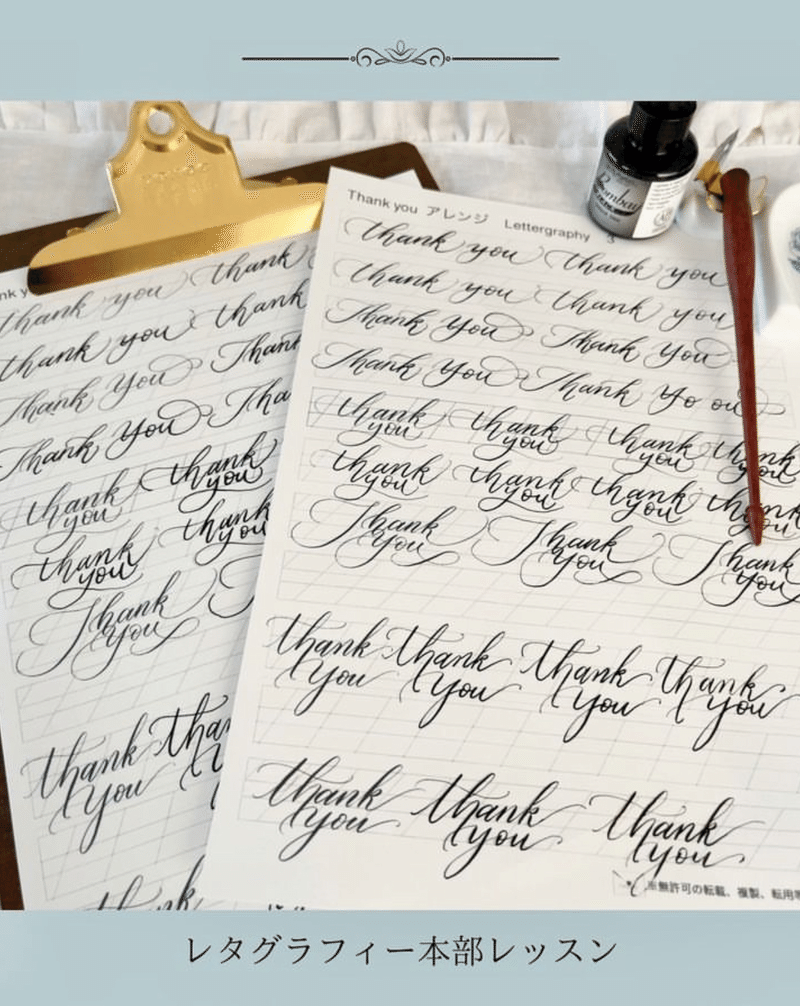 thank you thank
thank you thank
Thank You Thank
Thank You Tha
thank thank
you you
thank thank
you you
Thank
You
thank tha
you
thank
Bombay
Thank you アレンジ Lettergraphy 3
thank you thank you
thank you thank you
Thank You Thank You
Thank You Thank Yo ou
thank thank thank thank
you you you you
thank thank thank thank
you you you you
Thank Thank Thank
You You You
thank thank thank thank
you you you you
thank thank thank
you you you
※無許可の転載、複製、転用等
レタグラフィー本部レッスン